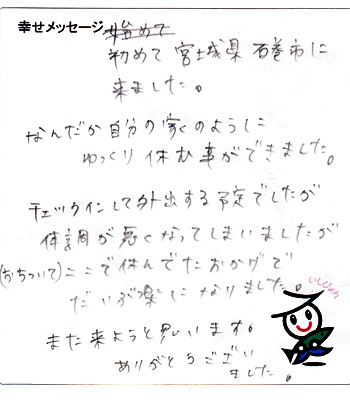 幸せメッセージ 始めて
初めて 宮城県 石巻市に
来ました。
なんだか自分の家のように
ゆっくり休む事ができました。
チェックインして外出する予定でしたが
体調が悪くなってしまいましたが
(おちついて)ここで休んでたおかげで
だいぶ楽になりました。
いしぴょん
また来ようと思います。
ありがとうござい
ました。